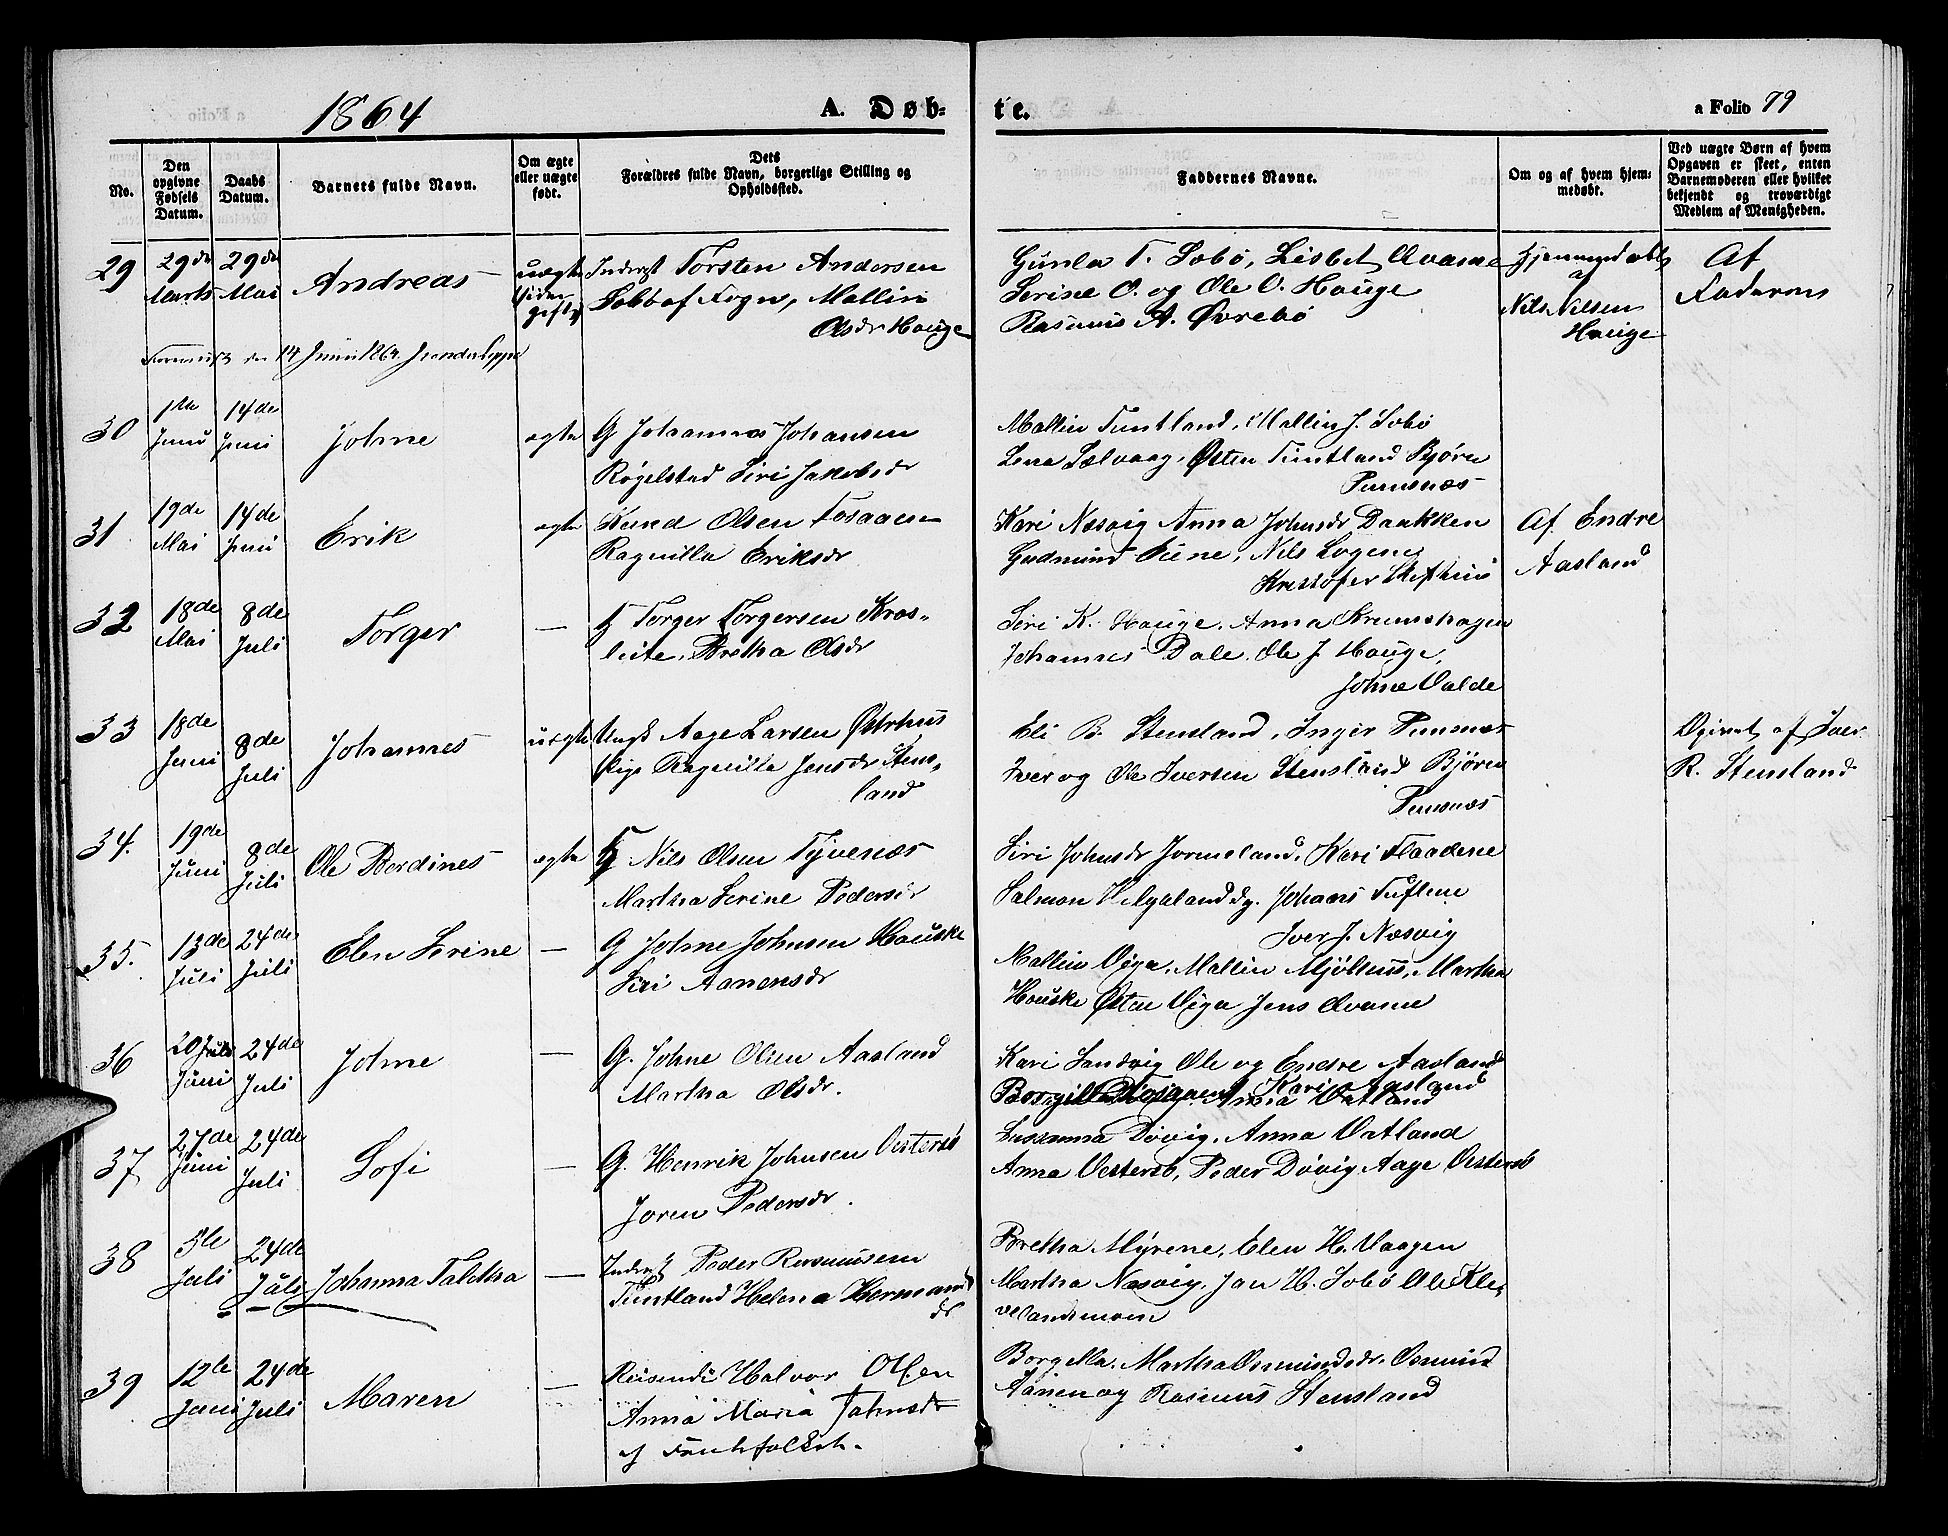 1864
A. Døb-
te.
a Folio 79
No.
Den opgivne Fødsels Datum.
Daabs Datum.
Barnets fulde Navn.
Om ægte eller uægte født.
Dets
Forældres fulde Navn, borgerlige Stilling og Opholdssted.
Faddernes Navne.
Om og af hvem hjemmedøbt.
Ved uægte Børn af hvem Opgaven er skeet, enten Barnemoderen eller hvilket bekjendt og troværdigt Medlem af Menigheden.
29 29de Marts 29de Mai Andreas uægte
Inderst Torsten Andersen
Sobb af Fogn, Mallin
Olsdr Hauge
Gunla T. Sobø, Lisbet Qvame
Serine O. og Ole O. Hauge
Rasmus A. Øvrebø
Hjemmedøbt af Nils Nilsen Hauge
Af Faderens
14 Juni 1864
30 1ste Juni 14de Juni Johne ægte
G Johannes Johansen
Røgelstad Siri Jakobsdr
Mallin Tuntland, Mallin J. Sobø
Lena Sælvaag, Østen Tuntland Bjørn
Punsnæs
31 19de Mai 14de Juni Erik ægte
Knud Olsen Fosaaen
Ragnilla Eriksdr
Kari Næsvig Anna Johnsdr Baakken
Gudmund Fiene, Nils Logene
Kristofer Steftun
Af Endre Aasland
32 18de Mai 8de Juli Torger —
G Torger Torgersen Kros-
leite, Bretha Olsdr
Siri K. Hauge, Anna Krumshagen
Johannes Dale, Ole J. Hauge,
Johne Valde
33 18de Juni 8de Juli Johannes uægte
Ungk Aage Larsen Østrhus
Pige Ragnilla Jensdr Stens-
land
Eli B. Stensland, Inger Punsnæs
Iver og Ole Iversen Stensland Bjørn
Punsnæs
Opgivet af Iver
R. Stensland
34. 19de Juni 8de Juli Ole Berdines ægte
G Nils Olsen Tyvenæs
Martha Serine Pedersdr
Siri Johnsdr Jormeland, Kari Flaadene
Salmon Helgaland dy. Johans Tuflen
Iver J. Næsvig
35. 13de Juli 24de Juli Elen Serine —
G Johne Johnsen Houske
Siri Aanensdr
Mallin Viga, Mallin Mjølhus, Martha
Houske Østen Viga Jens Qvame
36 20 Juli Juni 24de Juli Johne —
G. Johne Olsen Aasland
Martha Olsdr.
Kari Sandvig Ole og Endre Aasland
Borgilla Fosaaen, Kari Aasland
Anna Vatland
37 27de Juni 24de Juli Sofi —
G. Henrik Johnsen Vestersø
Joren Pedersdr.
Susanna Døvig, Anna Vatland
Anna Vestersø, Peder Døvig Aage Vestersø
38 5te Juli 24de Juli Johanna Taletha —
Inderst Peder Rasmussen
Tuntland Helena Hermans
dr
Bretha Myrene, Elen H. Vaagen
Martha Næsvig, Jan H. Sobø Ole Kle-
velandsmoen
39 12te Juni 24de Juli Maren —
Reisende Halvor Olsen
Anna Maria Johnsdr
af Fantefolket.
Borgella, Martha Osmundsdr, Osmund
Aanen og Rasmus Stensland